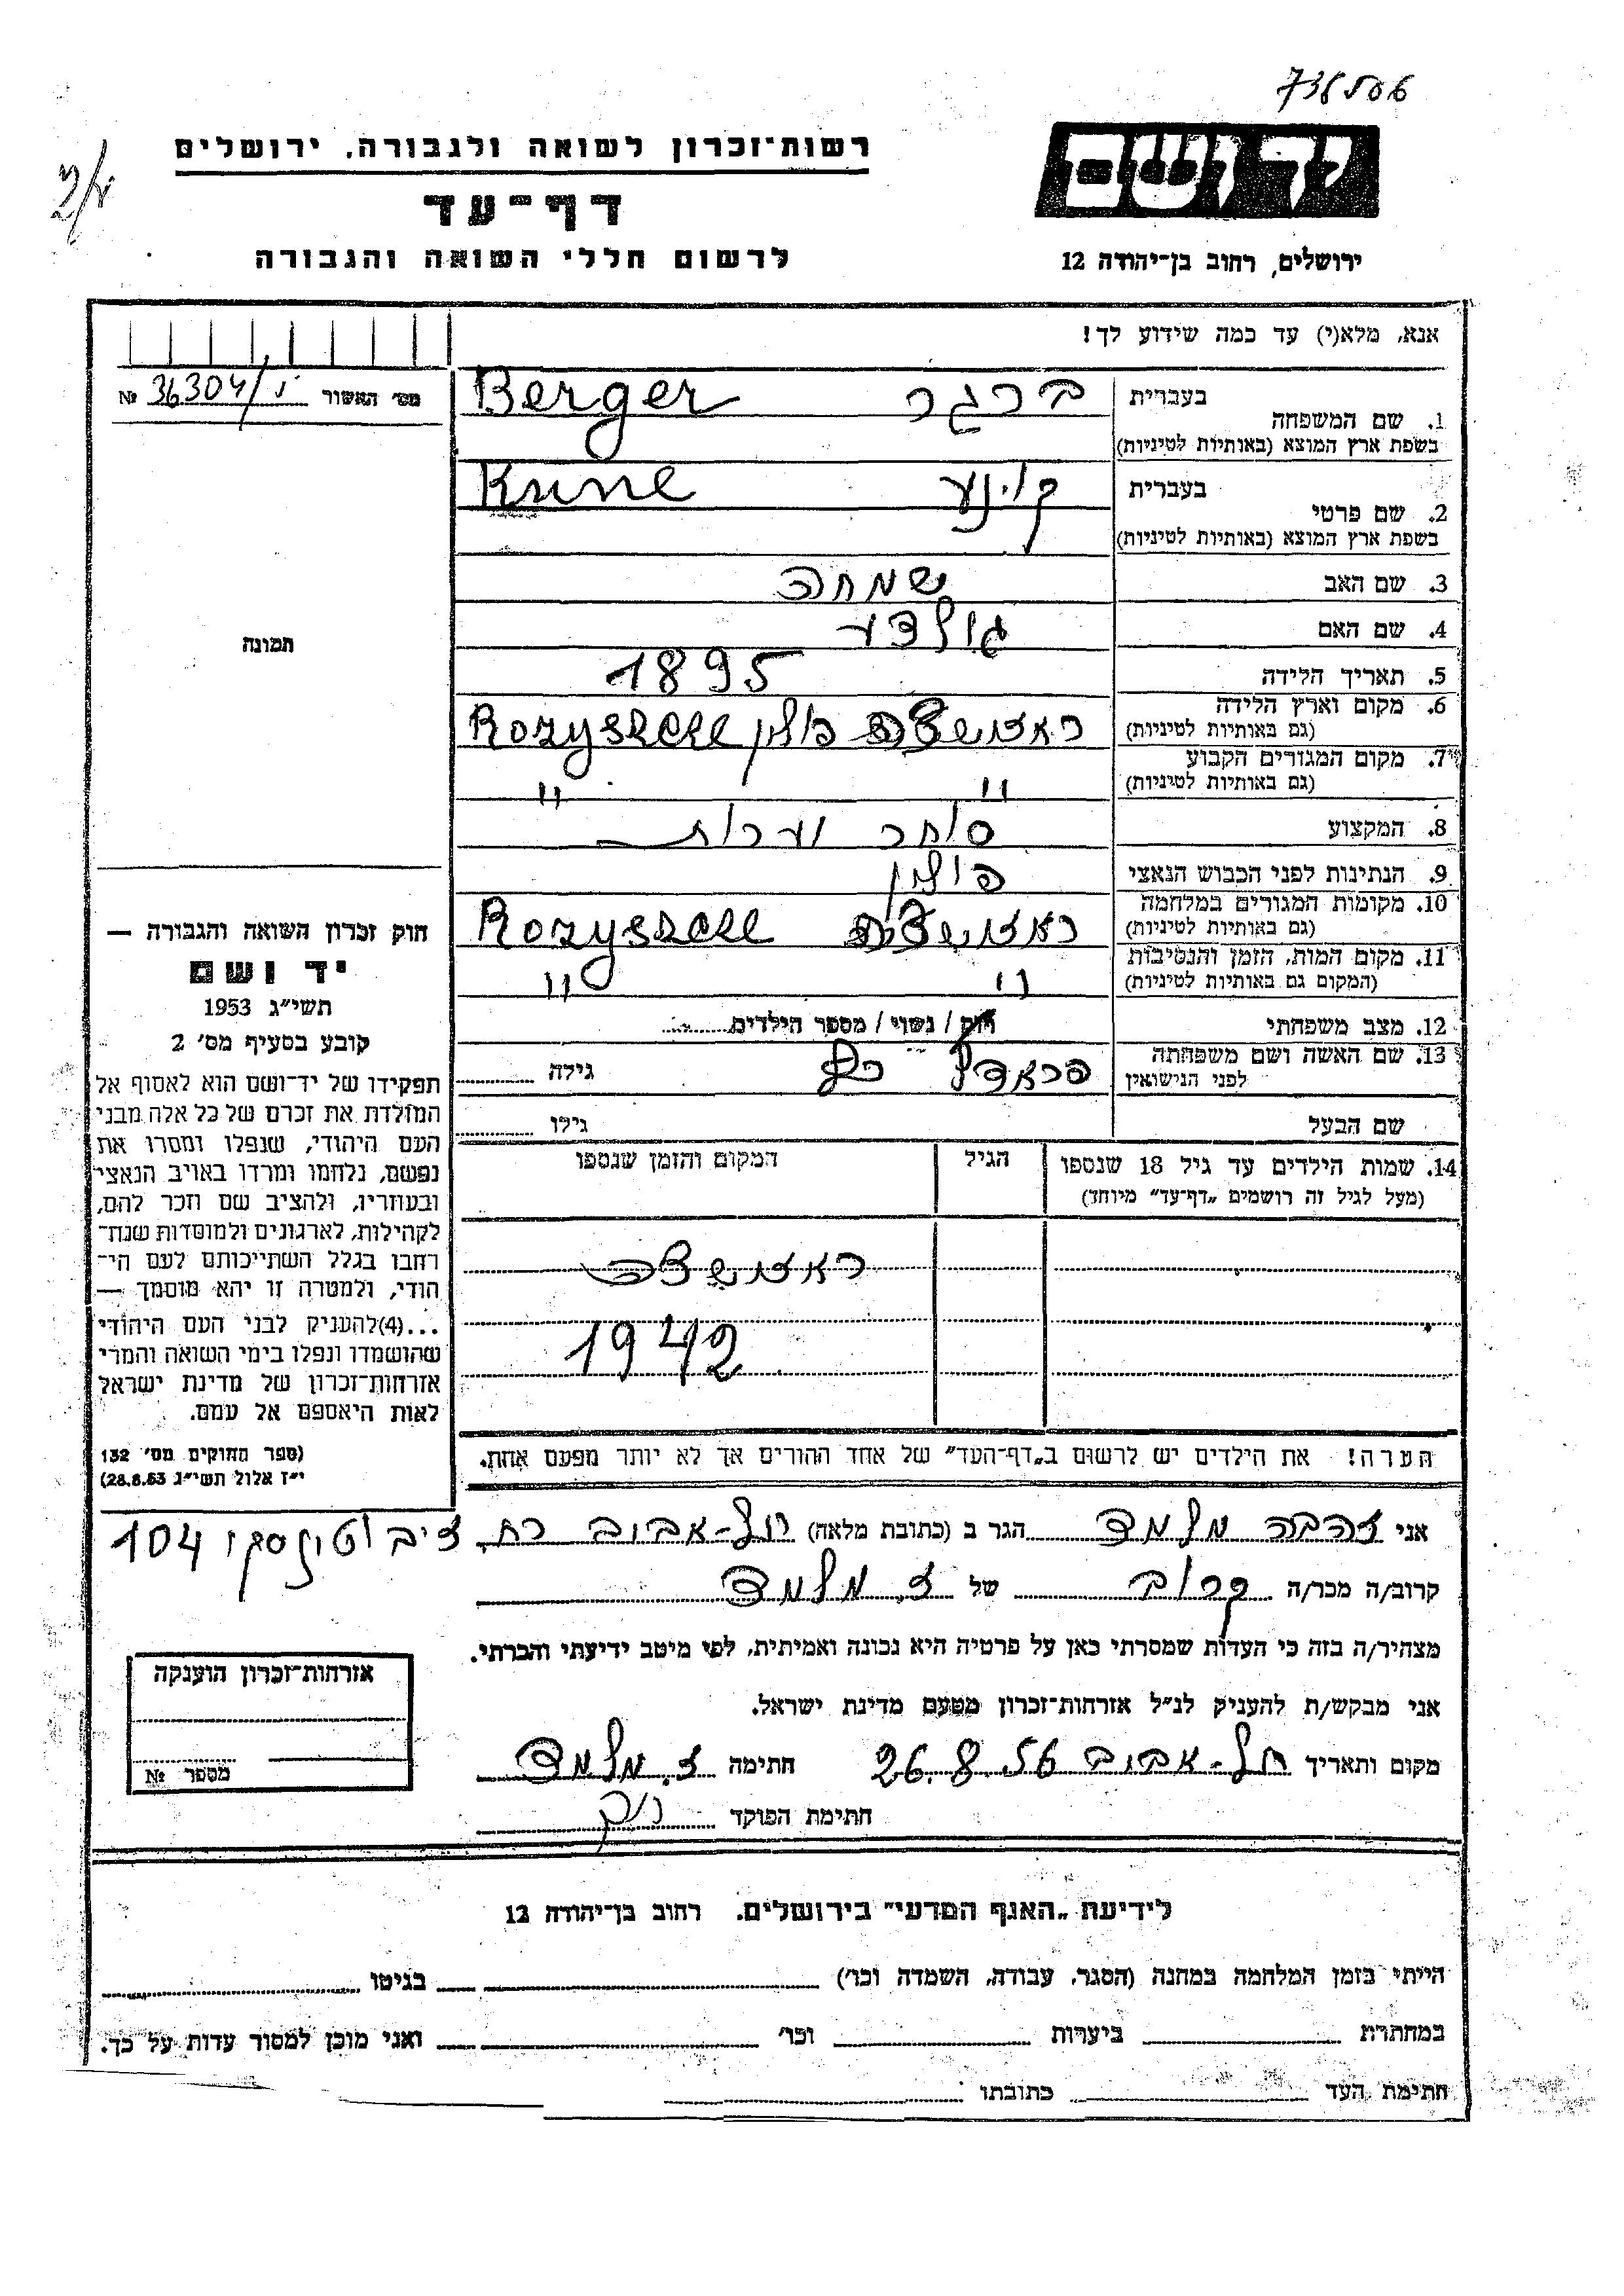 736506
רשות־זכרון לשואה ולגבורה, ירושלים
דף־עד
לרשום חללי השואה והגבורה
יד ושם
ירושלים, רחוב בן־יהודה 12
אנא, מלא(י) עד כמה שידוע לך!
מס׳ האשור 36304/ № 
1. שם המשפחה בעברית ברגר
בשפת ארץ המוצא (באותיות לטיניות) Berger
2. שם פרטי בעברית קונע
בשפת ארץ המוצא (באותיות לטיניות) Kune
3. שם האב שמחה
4. שם האם גולדע
5. תאריך הלידה 1895
6. מקום וארץ הלידה (גם באותיות לטיניות) ראזשישצה פולין
7. מקום המגורים הקבוע (גם באותיות לטיניות) " "
8. המקצוע סוחר
9. הנתינות לפני הכבוש הנאצי פולין
10. מקומות המגורים במלחמה (גם באותיות לטיניות)
11. מקום המות, הזמן והנסיבות (המקום גם באותיות לטיניות) " "
12. מצב משפחתי רווק / נשוי / מספר הילדים
13. שם האשה ושם משפחתה לפני הנישואין גילה
שם הבעל גילו
14. שמות הילדים עד גיל 18 שנספו הגיל המקום והזמן שנספו
(מעל לגיל זה רושמים „דף־עד״ מיוחד)
1942
הערה! את הילדים יש לרשום ב„דף־העד״ של אחד ההורים אך לא יותר מפעם אחת.
תמונה
חוק זכרון השואה והגבורה —
יד ושם
תשי״ג 1953
קובע בסעיף מס׳ 2
תפקידו של יד־ושם הוא לאסוף אל
המולדת את זכרם של כל אלה מבני
העם היהודי, שנפלו ומסרו את
נפשם, נלחמו ומרדו באויב הנאצי
ובעוזריו, ולהציב שם וזכר להם,
לקהילות, לארגונים ולמוסדות שנח־
רבו בגלל השתייכותם לעם הי־
הודי, ולמטרה זו יהא מוסמך —
...(4)להעניק לבני העם היהודי
שהושמדו ונפלו בימי השואה והמרי
אזרחות־זכרון של מדינת ישראל
לאות היאספם אל עמם.
(ספר החוקים מס׳ 132
י״ז אלול תשי״ג 28.8.53)
אני זהבה מלמד הגר ב (כתובת מלאה) תל־אביב רח׳ ז׳בוטינסקי 104
קרוב/ה מכר/ה קרוב של ז. מלמד
מצהיר/ה בזה כי העדות שמסרתי כאן על פרטיה היא נכונה ואמיתית, לפי מיטב ידיעתי והכרתי.
אני מבקש/ת להעניק לנ״ל אזרחות־זכרון מטעם מדינת ישראל.
מקום ותאריך תל־אביב 26.8.56 חתימה ז. מלמד
חתימת הפוקד
אזרחות־זכרון הוענקה
מספר №
לידיעת „האגף המדעי״ בירושלים, רחוב בן־יהודה 12
הייתי בזמן המלחמה במחנה (הסגר, עבודה, השמדה וכו׳) בגיטו
במחתרת ביערות וכו׳ ואני מוכן למסור עדות על כך.
חתימת העד כתובתו